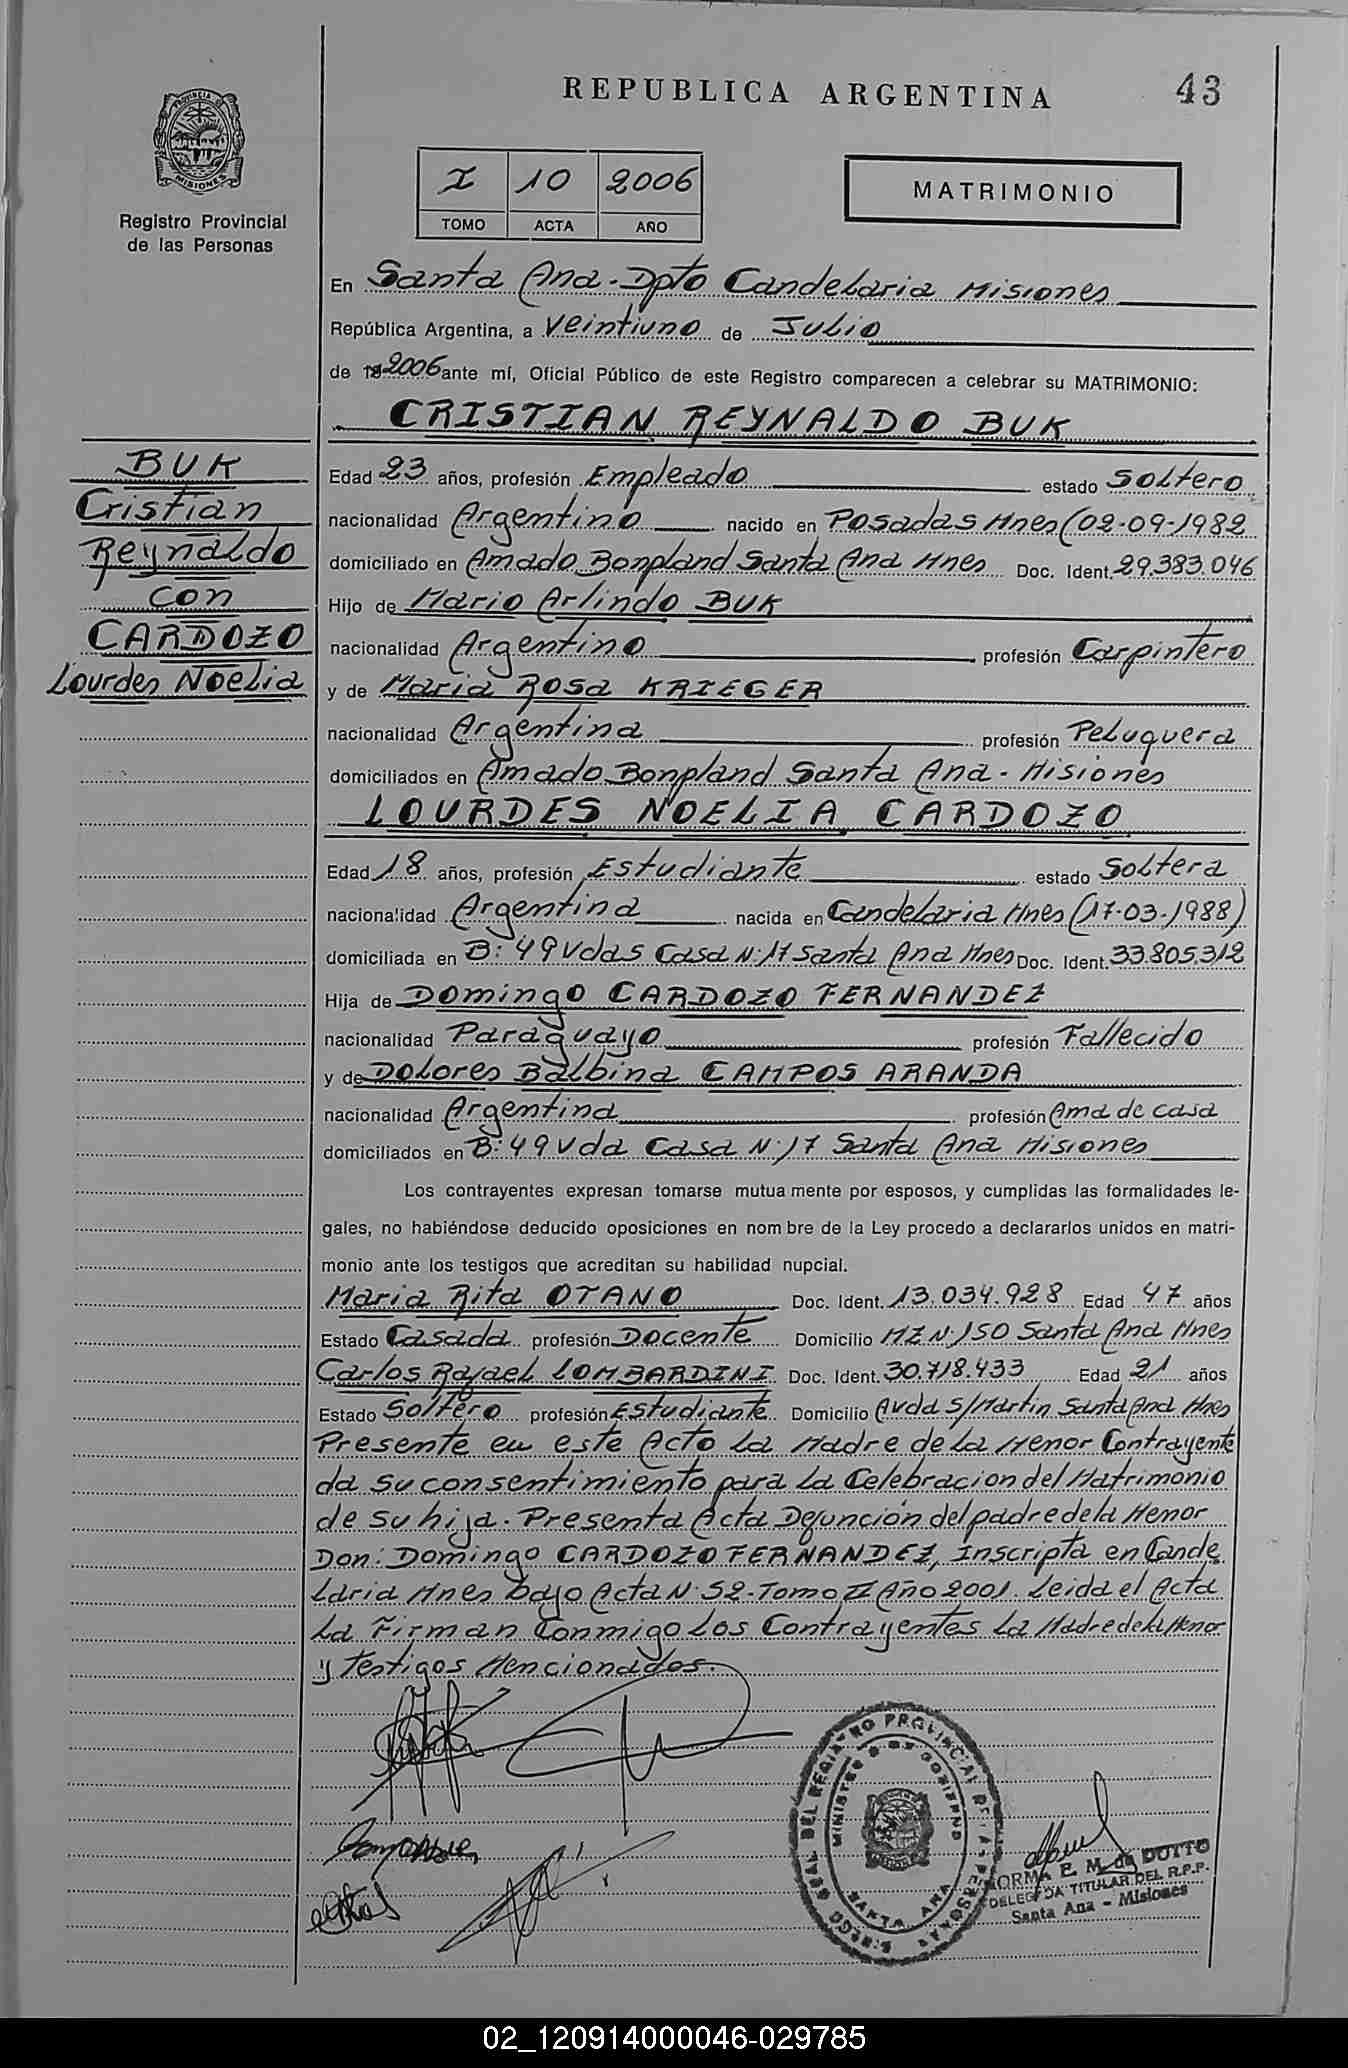 REPUBLICA ARGENTINA
43
PROVINCIA DE
MISIONES
Registro Provincial
de las Personas
I 10 2006
TOMO ACTA AÑO
MATRIMONIO
En Santa Ana-Dpto Candelaria Misiones
República Argentina, a Veintiuno de Julio
de 19 2006 ante mí, Oficial Público de este Registro comparecen a celebrar su MATRIMONIO:
CRISTIAN REYNALDO BUK
BUK
Cristian
Reynaldo
con
CARDOZO
Lourdes Noelia
Edad 23 años, profesión Empleado estado Soltero
nacionalidad Argentino nacido en Posadas Mnes (02-09-1982
domiciliado en Amado Bonpland Santa Ana Mnes Doc. Ident. 29.383.046
Hijo de Mario Arlindo BUK
nacionalidad Argentino profesión Carpintero
y de Maria Rosa KRIEGER
nacionalidad Argentina profesión Peluquera
domiciliados en Amado Bonpland Santa Ana - Misiones
LOURDES NOELIA CARDOZO
Edad 18 años, profesión Estudiante estado Soltera
nacionalidad Argentina nacida en Candelaria Mnes (17-03-1988)
domiciliada en B: 49 Vdas Casa N: 17 Santa Ana Mnes Doc. Ident. 33.805.312
Hija de Domingo CARDOZO FERNANDEZ
nacionalidad Paraguayo profesión Fallecido
y de Dolores Balbina CAMPOS ARANDA
nacionalidad Argentina profesión Ama de casa
domiciliados en B: 49 Vda Casa N: 17 Santa Ana Misiones
Los contrayentes expresan tomarse mutua mente por esposos, y cumplidas las formalidades le-
gales, no habiéndose deducido oposiciones en nom bre de la Ley procedo a declararlos unidos en matri-
monio ante los testigos que acreditan su habilidad nupcial.
Maria Rita OTANO Doc. Ident. 13.034.928 Edad 47 años
Estado Casada profesión Docente Domicilio MZ N: 150 Santa Ana Mnes
Carlos Rafael LOMBARDINI Doc. Ident. 30.718.433 Edad 21 años
Estado Soltero profesión Estudiante Domicilio Avda S/Martin Santa Ana Mnes
Presente en este Acto la Madre de la Menor Contrayente
da su consentimiento para la Celebracion del Matrimonio
de su hija. Presenta Acta Defunción del padre de la Menor
Don: Domingo CARDOZO FERNANDEZ, Inscripta en Cande
laria Mnes bajo Acta N: 52-Tomo II Año 2001. Leida el Acta
La Firman Conmigo los Contrayentes La Madre de la Menor
y Testigos Mencionados.
DEL REGISTRO PROVINCIAL DE LAS PERSONAS
MINISTERIO DE GOBIERNO
SANTA ANA
NORMA E. M. de DUTTO
DELEGADA TITULAR DEL R.P.P.
Santa Ana - Misiones
02_120914000046-029785